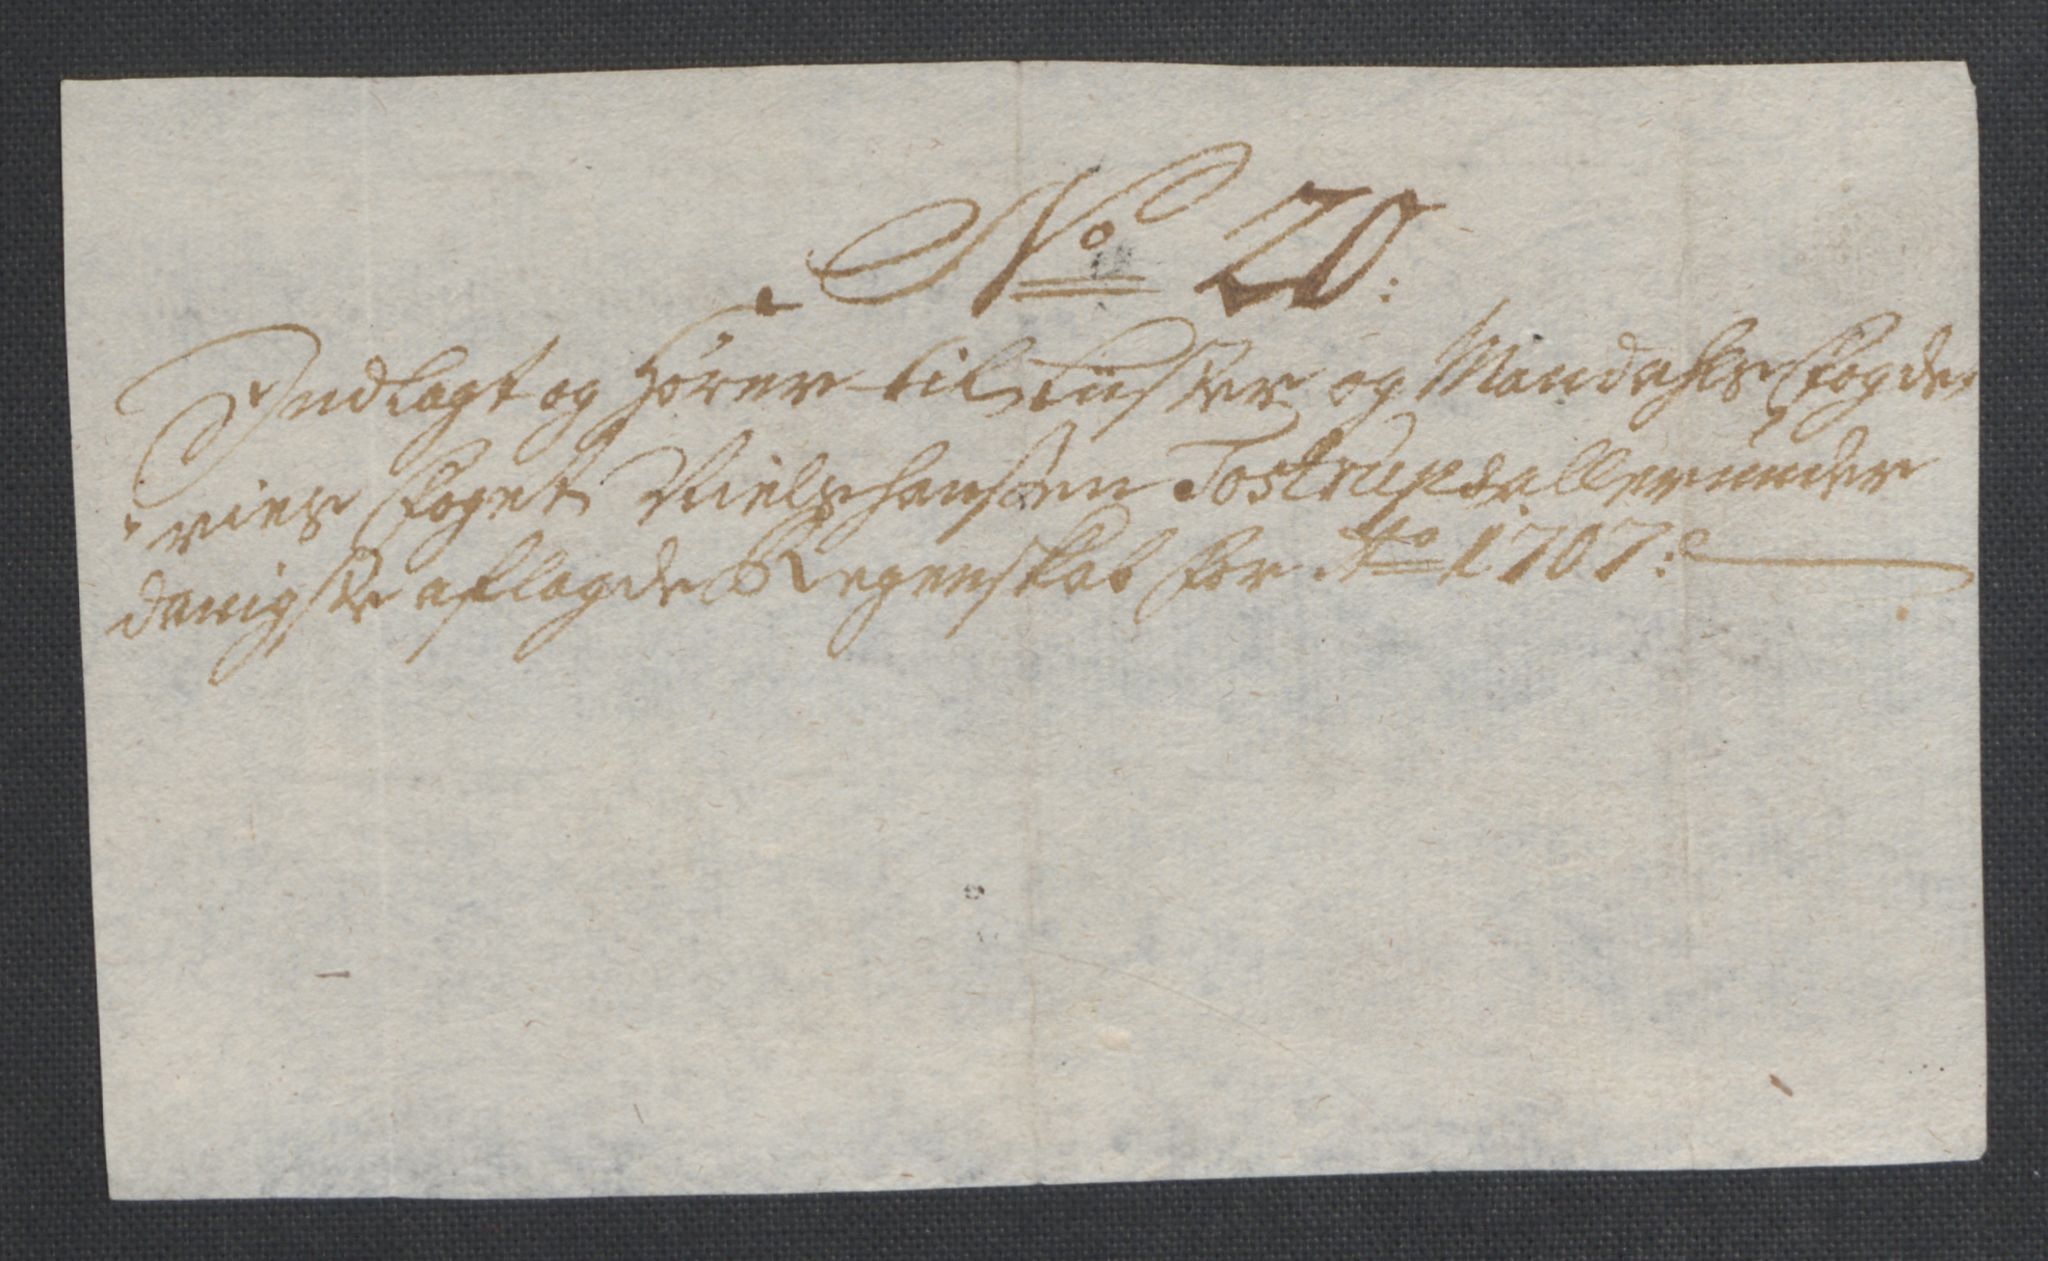 No 20:
Indlagt og hører til Lister og Mandahls Fogde¬
riers Foget Niels hansøn Tostrups allerunder
danigste aflagde Regenskab for Ao 1707: